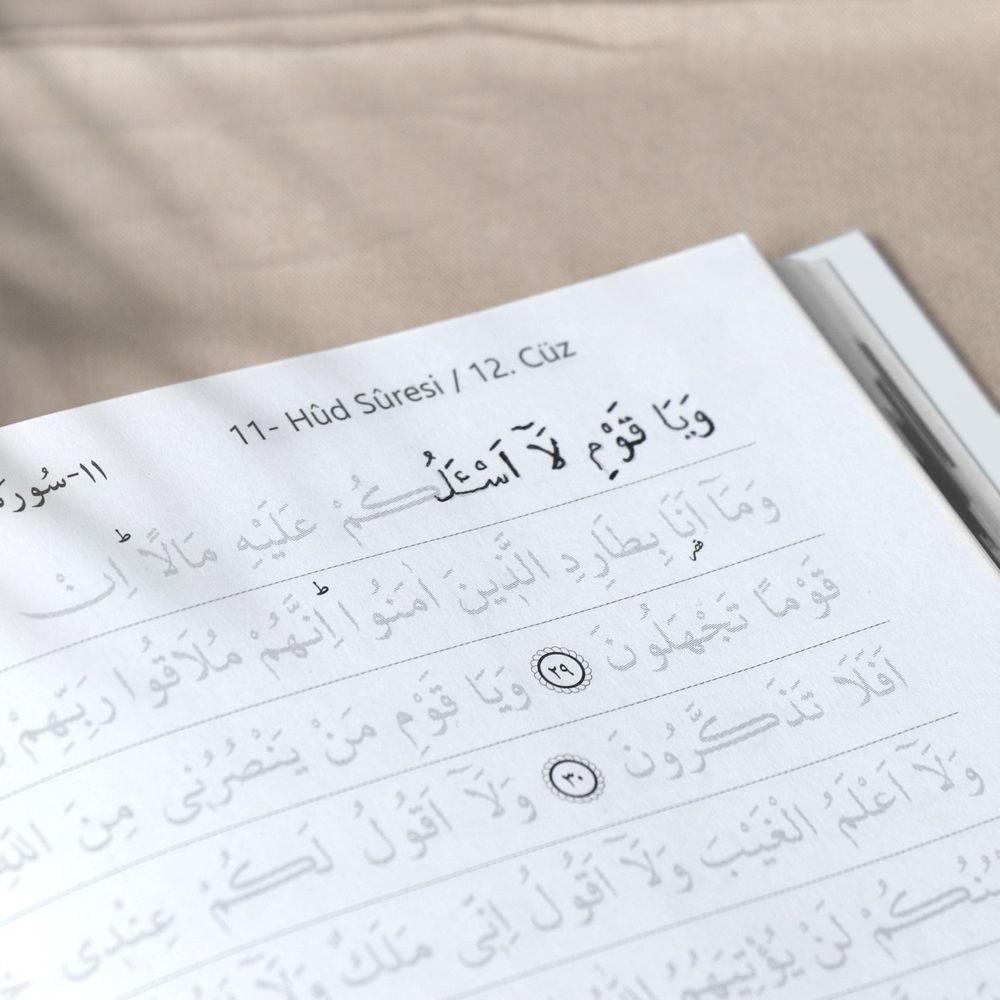 11- Hûd Sûresi / 12. Cüz
١١-سُورَة
وَيَا قَوْمِ لَآ اَسْـَٔلُكُمْ عَلَيْهِ مَالًاۜ اِنْ
وَمَآ اَنَا۬ بِطَارِدِ الَّذ۪ينَ اٰمَنُواۜ اِنَّهُمْ مُلَاقُوا رَبِّهِمْ
قَوْمًا تَجْهَلُونَ ﴿٢٩﴾ وَيَا قَوْمِ مَنْ يَنْصُرُن۪ي مِنَ اللّٰهِ
اَفَلَا تَذَكَّرُونَ ﴿٣٠﴾ وَلَآ اَقُولُ لَكُمْ عِنْد۪ي
وَلَآ اَعْلَمُ الْغَيْبَ وَلَآ اَقُولُ اِنّ۪ي مَلَكٌ وَلَآ
لَنْ يُؤْتِيَهُمُ